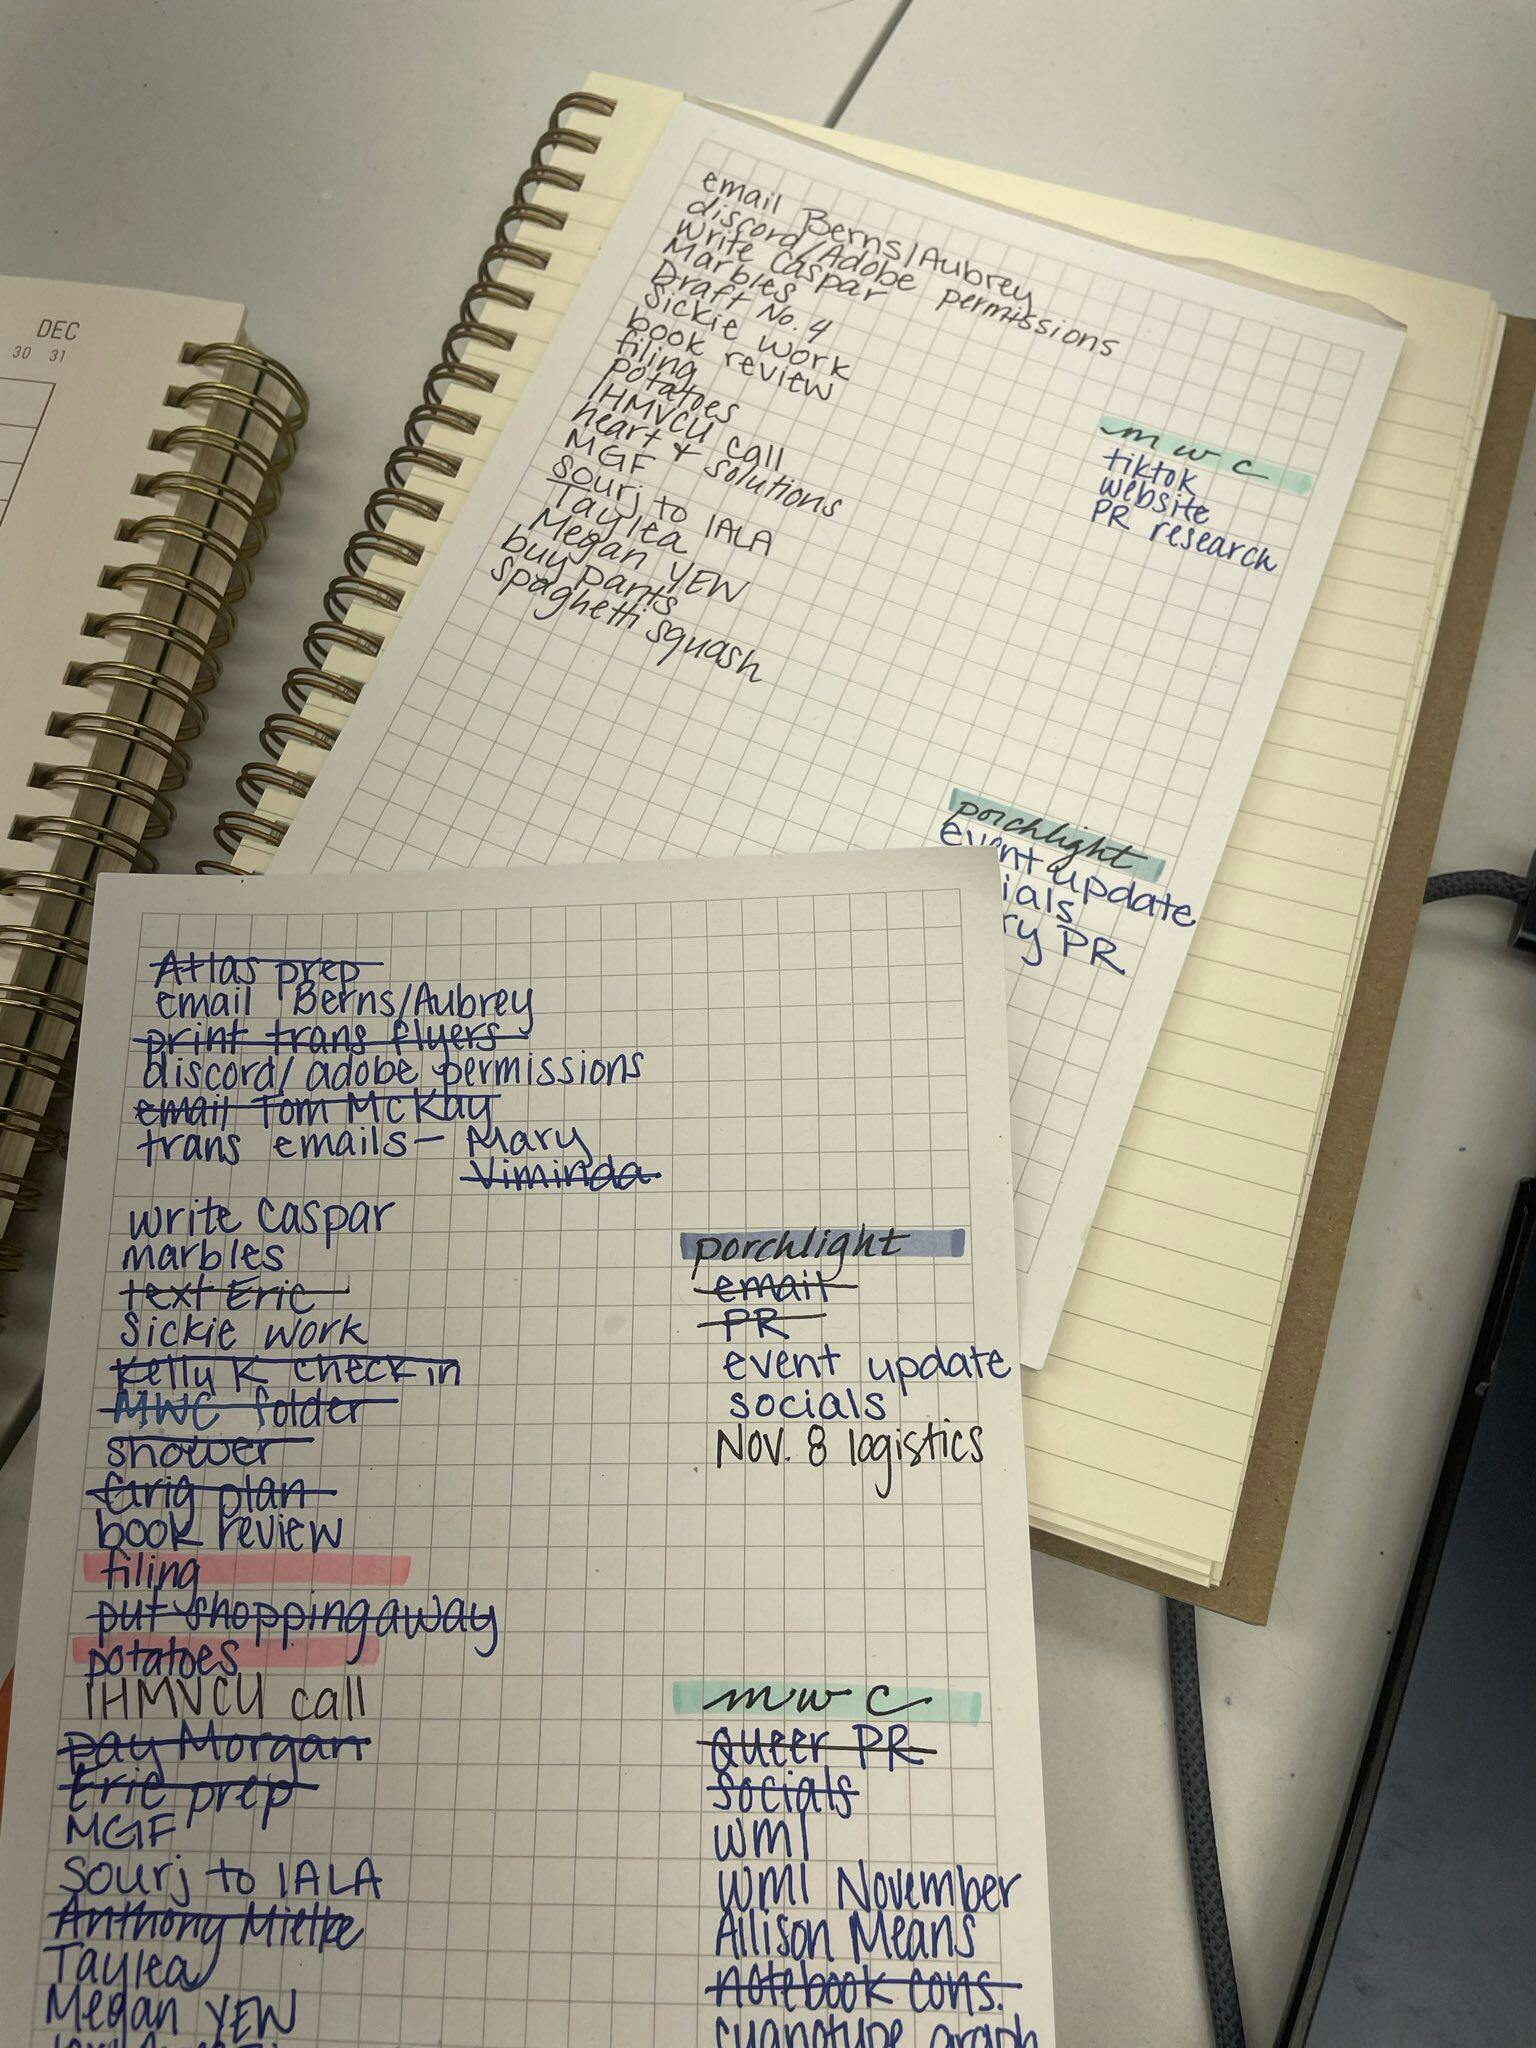 DEC
30 31
email Berns/Aubrey
discord/Adobe permissions
write Caspar
Marbles
Draft No. 4
Sickie work
book review
filing
potatoes
IHMVCU call
heart + solutions
MGF
sourj to IALA
Taylea
Megan YEW
buy pants
spaghetti squash
mwc
tiktok
website
PR research
porchlight
event update
ials
ry PR
Atlas prep
email Berns/Aubrey
print trans flyers
discord/adobe permissions
email Tom McKay
trans emails - Mary
Viminda
write Caspar
marbles
text Eric
Sickie work
Kelly K check in
MWC folder
shower
plan
book review
filing
put shopping away
potatoes
IHMVCU call
pay Morgan
Eric prep
MGF
Sourj to IALA
Anthony Mielke
Taylea
Megan YEW
porchlight
email
PR
event update
socials
Nov. 8 logistics
mwc
queer PR
socials
WMI
WMI November
Allison Means
notebook cons.
cyanotype graph